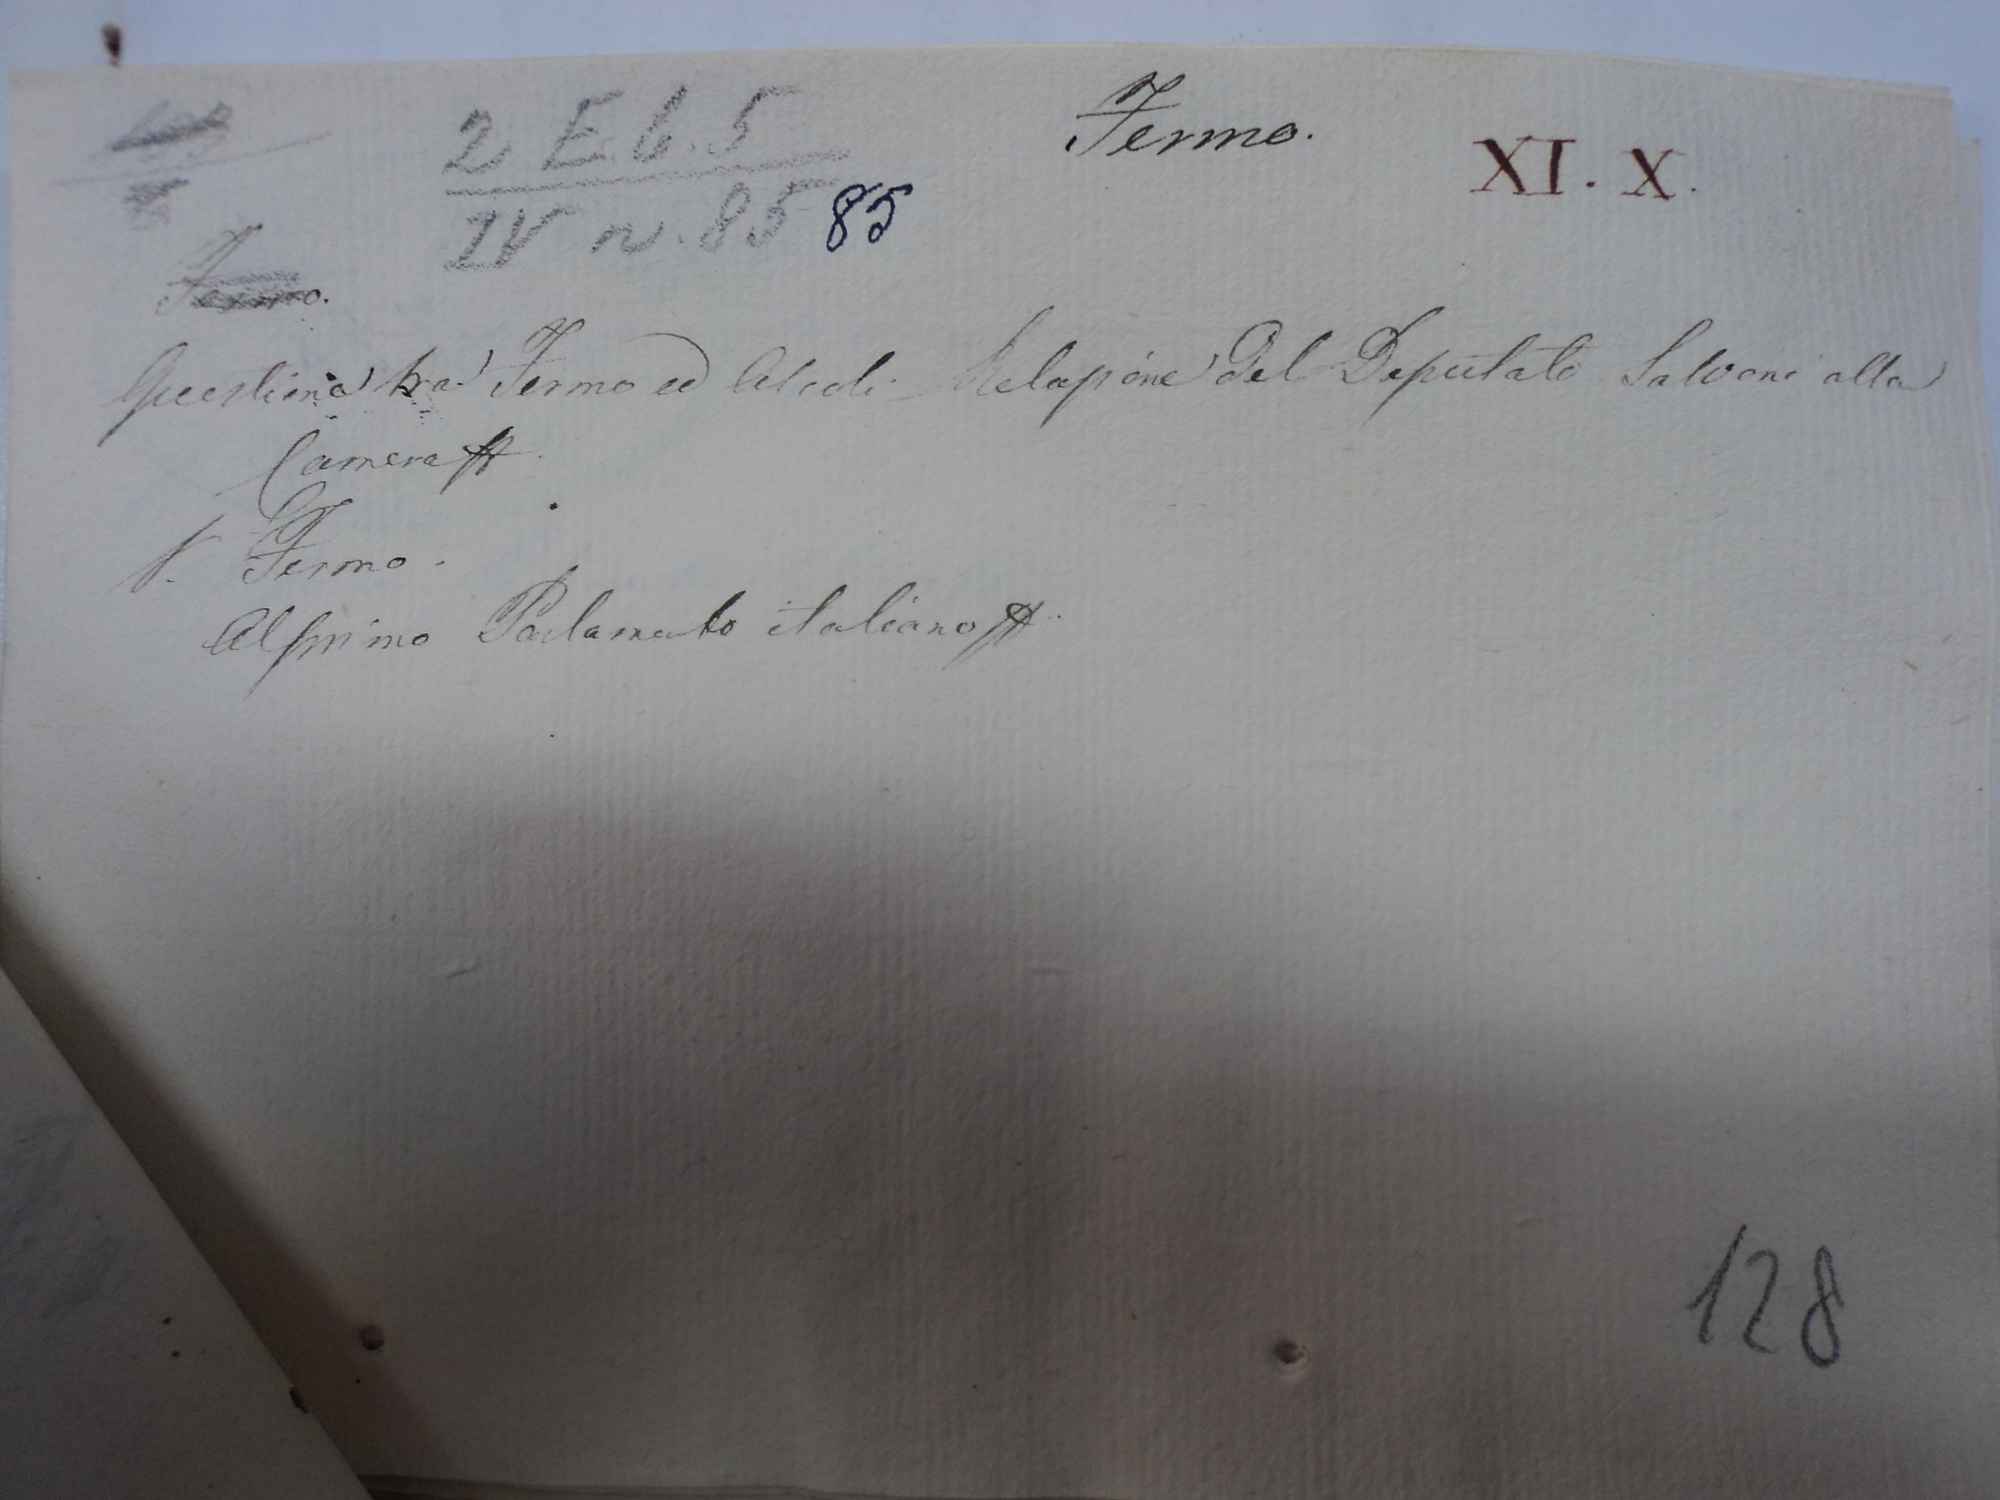 Fermo.
XI. X.
2 E. 6. 5
IV n. 85 85
Fermo.
Questione tra Fermo ed Ascoli - Relazione del Deputato Salvoni alla
Camera
V. Fermo.
Al primo Parlamento italiano
128